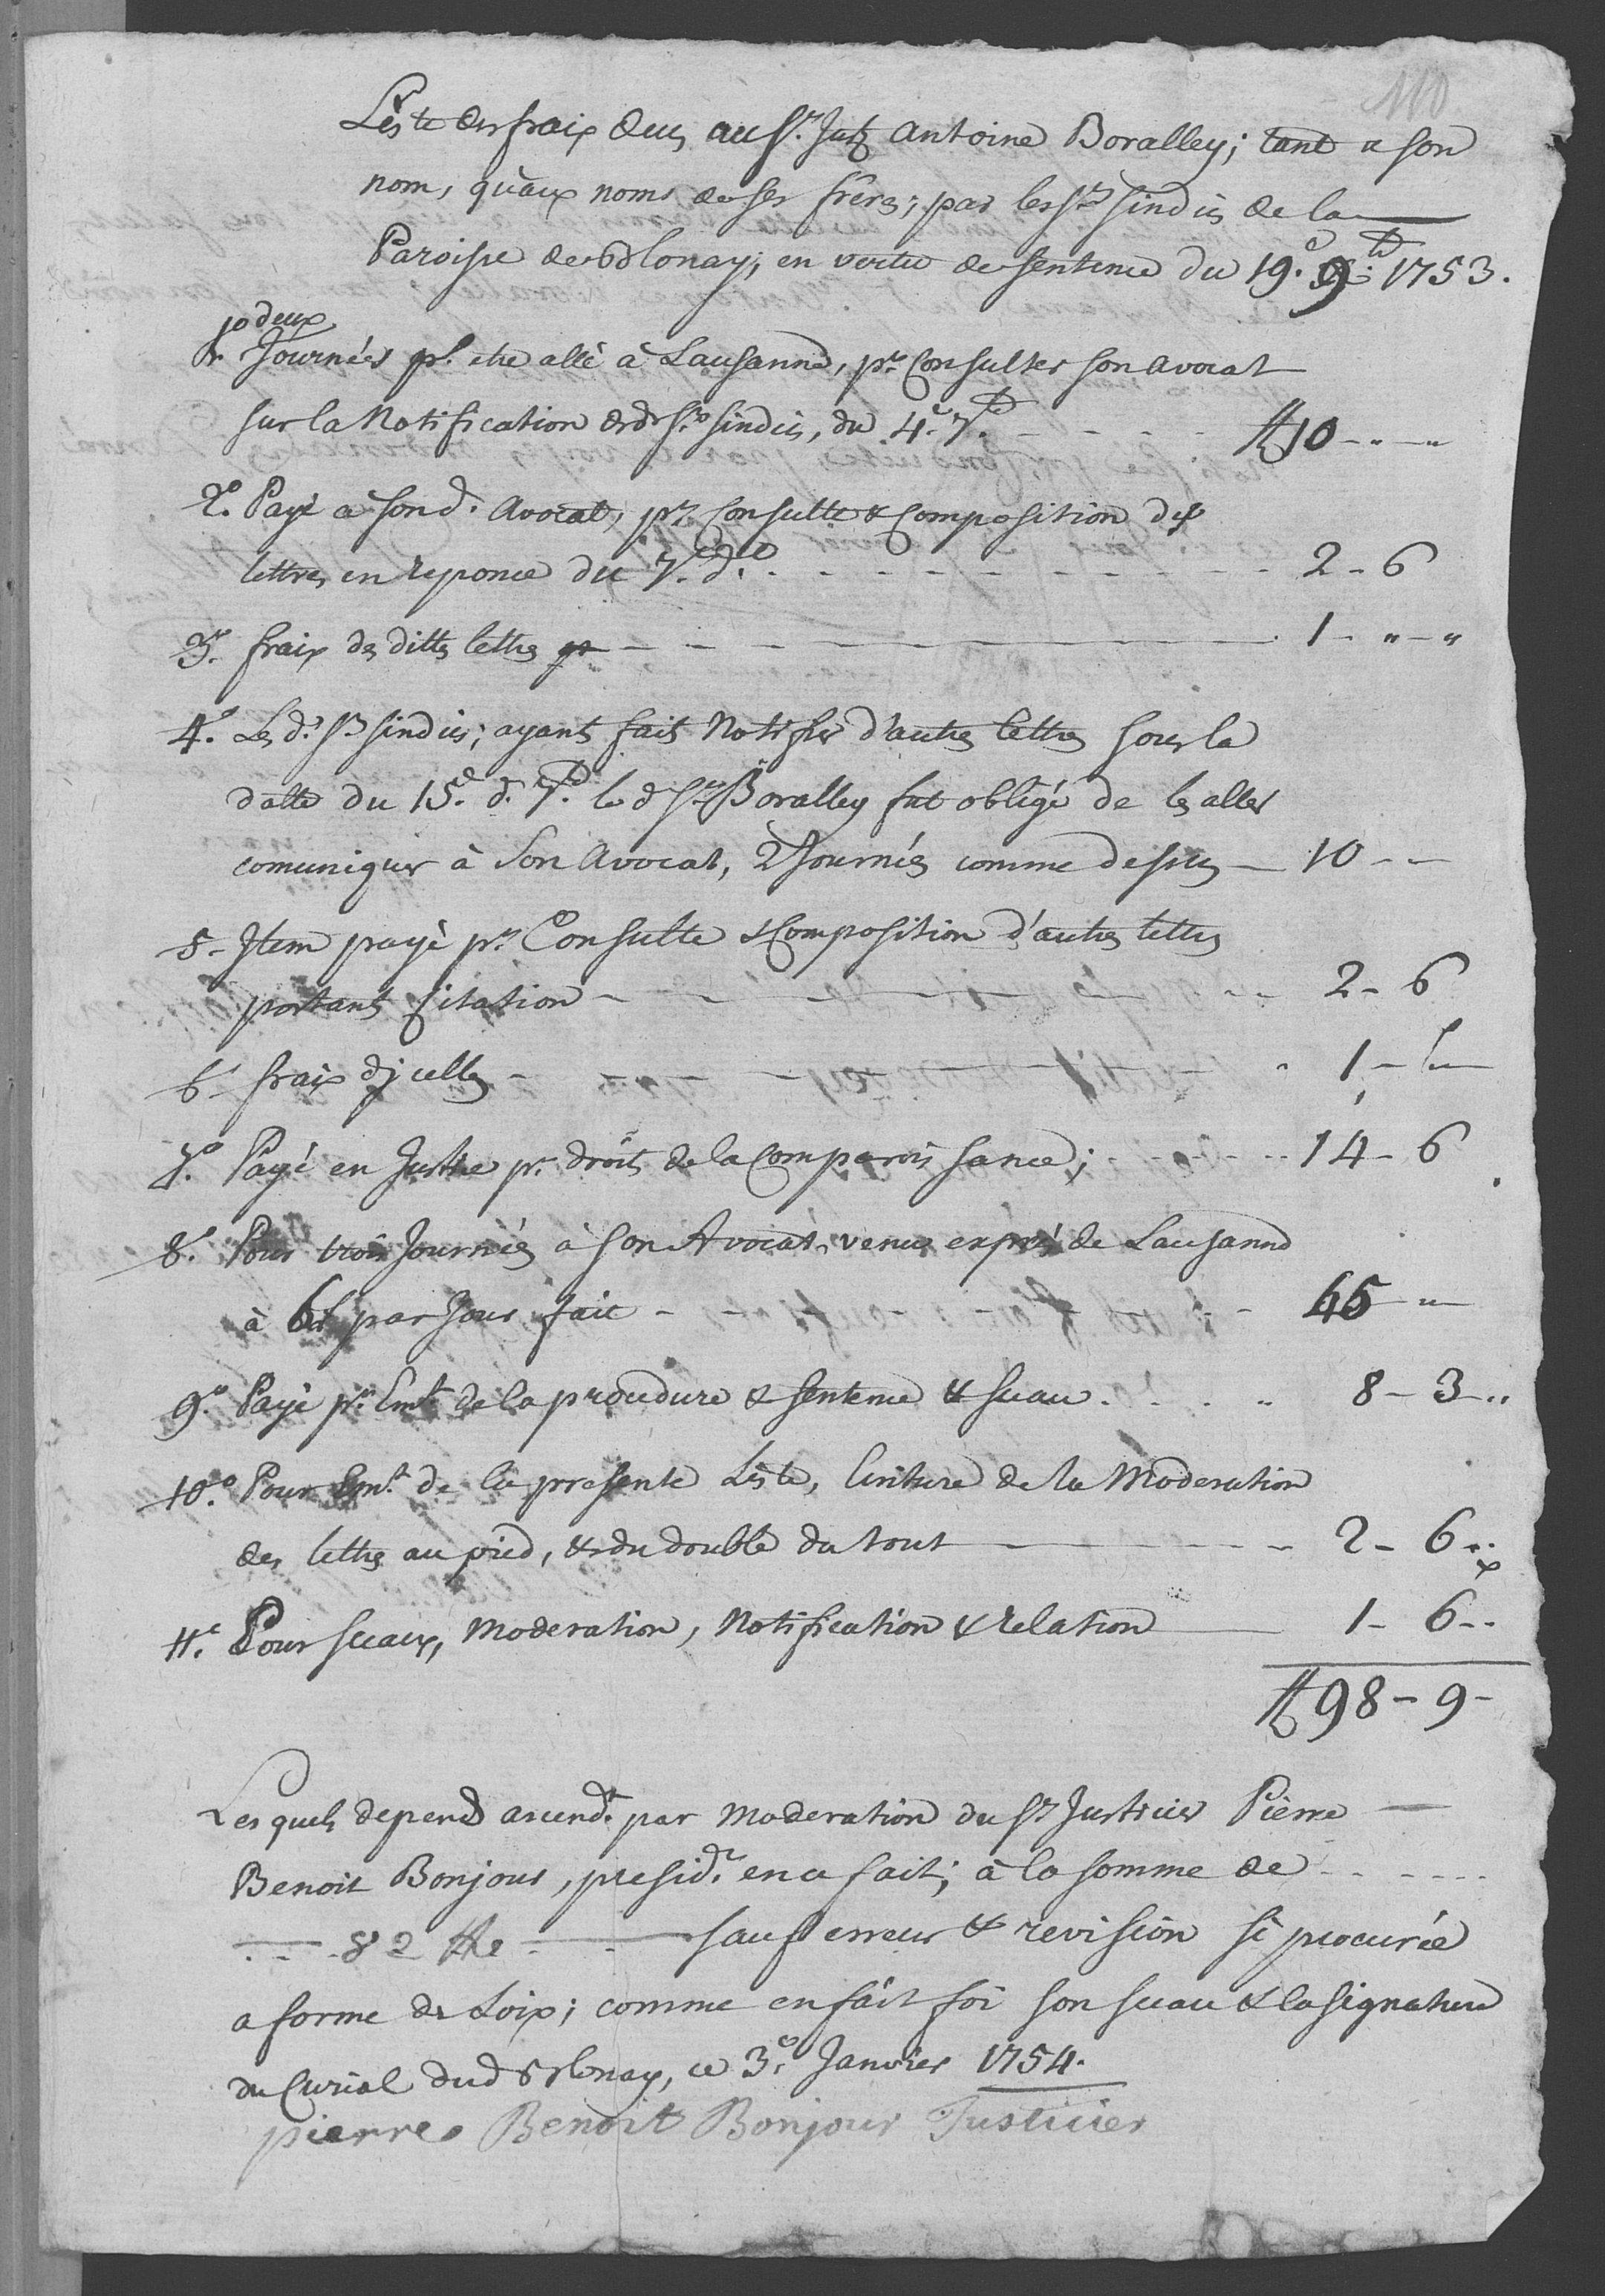 110
Liste des fraix deus au Sr. Just. Antoine Boralley; tant a son
nom, qu'aux noms de ses frères; par les Srs. sindics de la
Paroisse de Blonay; en vertu de sentence du 19e. 9bre. 1753.
1o deux
Journées pr. etre allé à Lausanne, pr. Consulter son avocat
sur la Notification des dts. Srs. sindics, du 4e. 7bre. - - - ₶ 10 - " - "
2o. Payé a son d. avocat, pr. Consulte & Composition des
lettres en reponce du 7e. do. - - - 2 - 6
3o. fraix des dittes lettres - - - 1 - " - "
4o. Les ds. Srs. sindics; ayants fait Notifier d'autres lettres sous la
datte du 15e. d. 7bre. le d. Sr. Boralley fut obligé de les aller
comuniquer à son Avocat, 2 Journées comme dessus - 10 - -
5 - Item payé pr. Consulte & Composition d'autres lettres
portants Citation - - - 2 - 6
6 - fraix d'icelles - - - 1 - "
7o. Payé en Justice pr. droits de la Comparoissance; - - - 14 - 6
8o. Pour trois Journées à son Avocat, venus exprés de Lausanne
à par Jour fait - - - 45 - "
9o. Payé pr. Emt. de la procedure & sentence & sceau . . . 8 - 3 - "
10o. Pour Emt. de la presente Liste, Ecriture de la Moderation
des lettres au pied, & du double du tout - - - 2 - 6 -
11e. Pour sceaux, Moderation, Notification & relation - 1 - 6 - -
₶ 98 - 9 -
Lesquels depends ascendt. par Moderation du Sr. Justicier Pierre
Benoit Bonjour, presidt. en ce fait; à la somme de - - -
- - - 82 ₶ - - - sauf erreur & revision si procurée
a forme des Loix; comme en fait foi son sceau & la signature
du Curial dud. Blonay, ce 3e. Janvier 1754.
pierre Benoit Bonjour Justicier